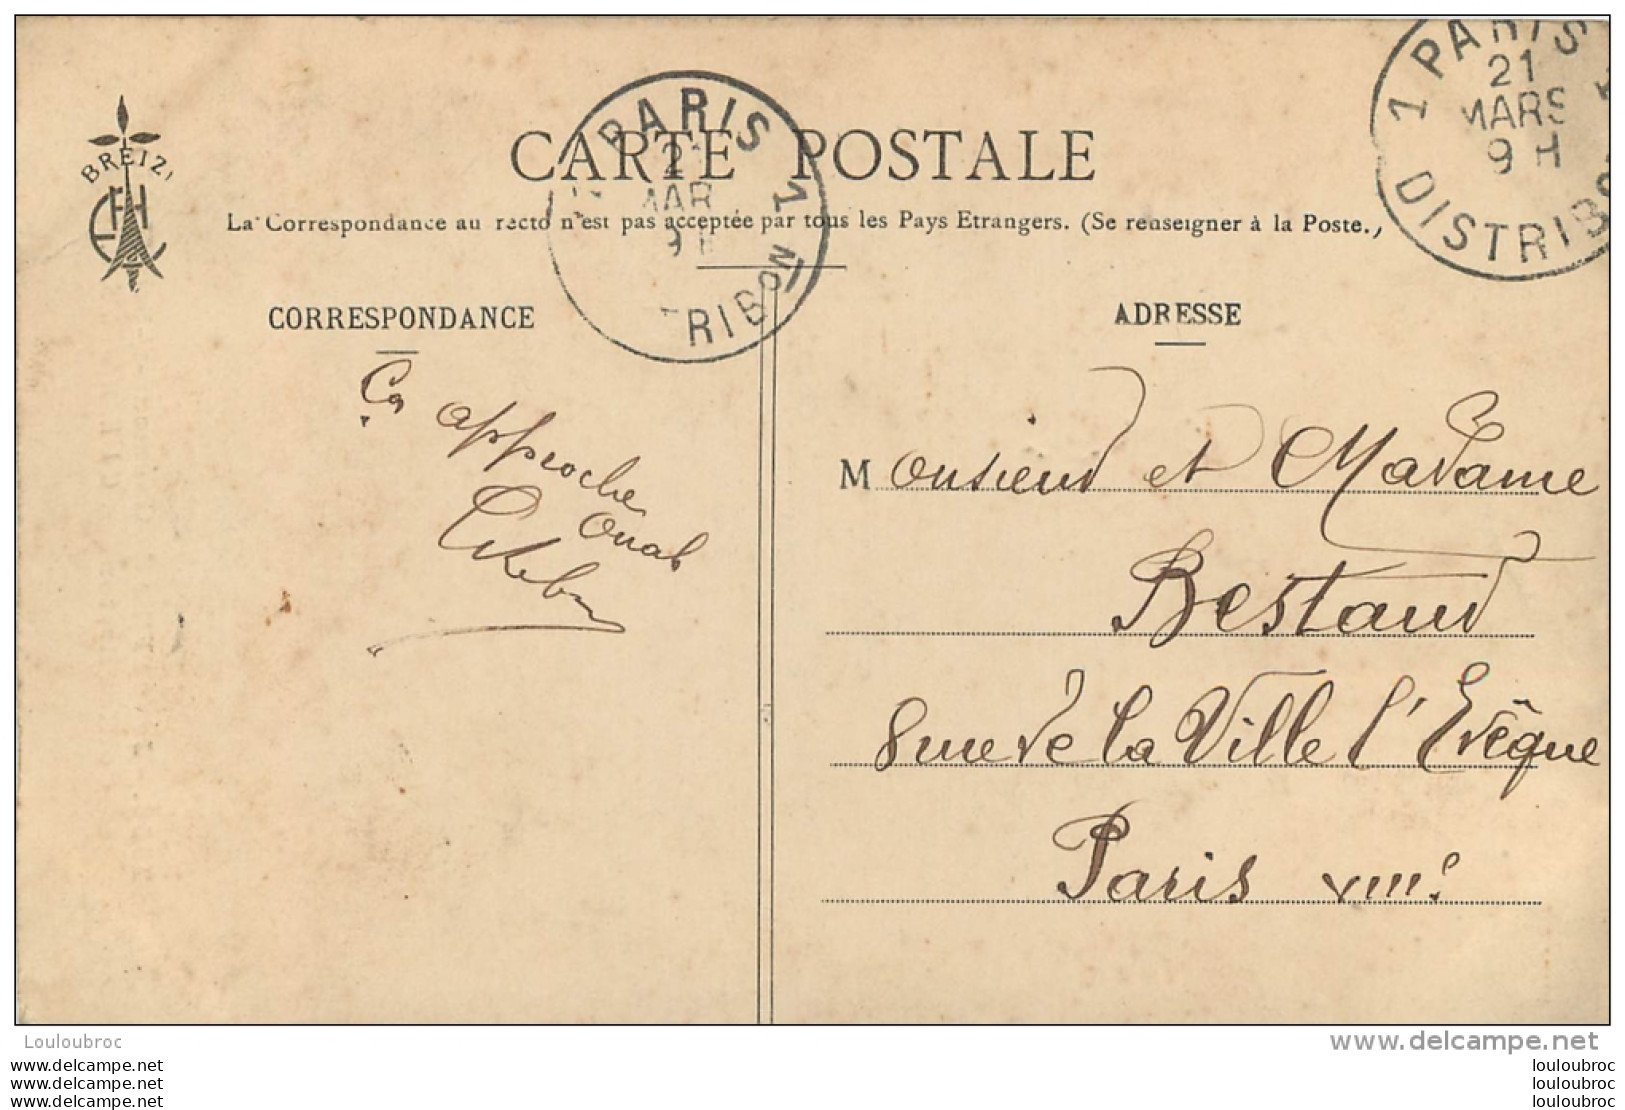 BREIZ
CARTE POSTALE
La Correspondance au recto n'est pas acceptée par tous les Pays Etrangers. (Se renseigner à la Poste.)
PARIS 1
RIBON
1 PARIS
21
MARS
9 H
DISTRIBON
CORRESPONDANCE
Ça approche
ADRESSE
Monsieur et Madame
Bestaud
8 rue de la Ville l'Evêque
Paris VIIIe
Louloubroc
www.delcampe.net
louloubroc.net
louloubroc.net
louloubroc.net
louloubroc
louloubroc
louloubroc